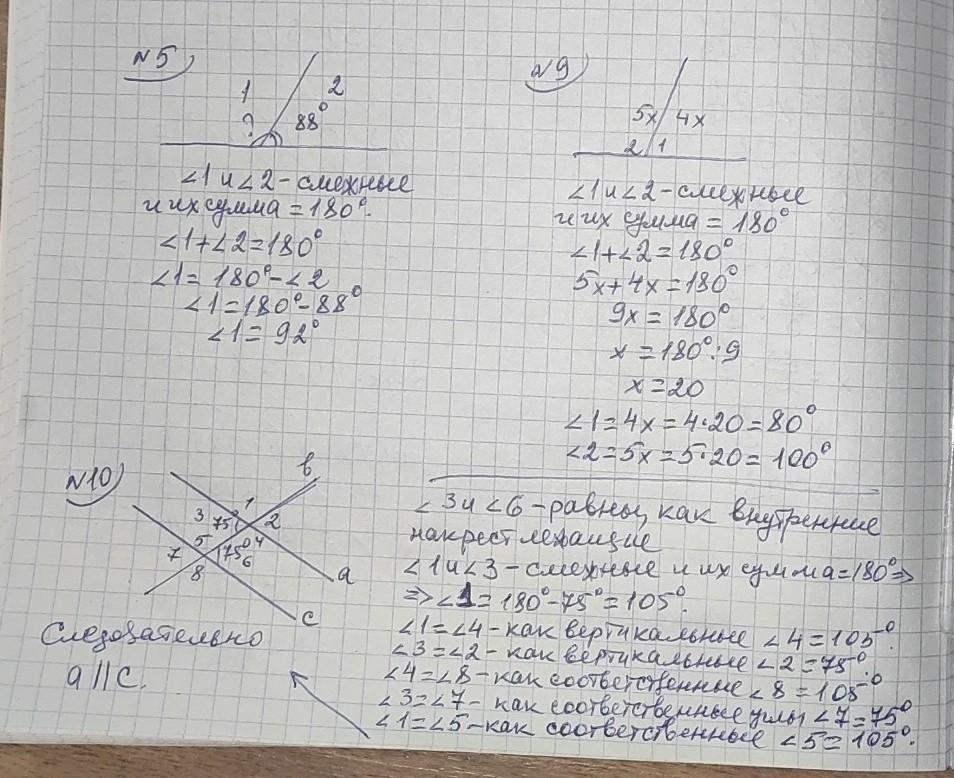 №5
1
2
?
88°
∠1 и ∠2 - смежные
и их сумма = 180°.
∠1+∠2=180°
∠1= 180°-∠2
∠1=180°-88°
∠1= 92°
№9
5x
4x
2
1
∠1 и ∠2 - смежные
и их сумма = 180°
∠1+∠2=180°
5x+4x=180°
9x=180°
x=180°:9
x=20
∠1=4x=4·20=80°
∠2=5x=5·20=100°
№10
в
1
3
75°
2
5
4
7
75°
6
8
a
c
Следовательно
a||c.
∠3 и ∠6 - равны, как внутренние
накрест лежащие
∠1 и ∠3 - смежные и их сумма=180°⇒
⇒∠1= 180°-75°=105°.
∠1=∠4 - как вертикальные ∠4=105°.
∠3=∠2 - как вертикальные ∠2=75°.
∠4=∠8 - как соответственные ∠8=105°
∠3=∠7 - как соответственные углы ∠7=75°
∠1=∠5 - как соответственные ∠5=105°.